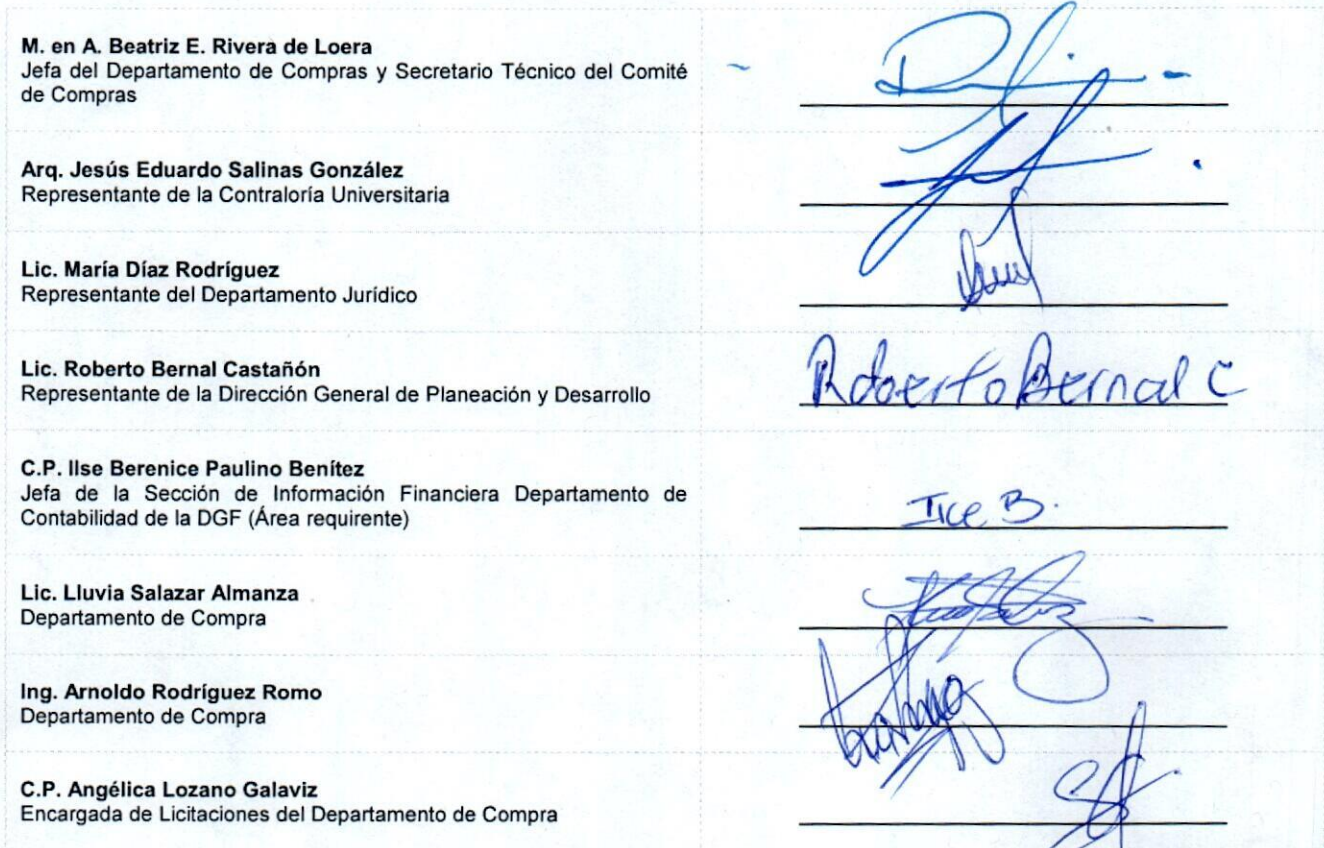 M. en A. Beatriz E. Rivera de Loera
Jefa del Departamento de Compras y Secretario Técnico del Comité
de Compras
Arq. Jesús Eduardo Salinas González
Representante de la Contraloría Universitaria
Lic. María Díaz Rodríguez
Representante del Departamento Jurídico
Lic. Roberto Bernal Castañón
Representante de la Dirección General de Planeación y Desarrollo
Roberto Bernal C
C.P. Ilse Berenice Paulino Benítez
Jefa de la Sección de Información Financiera Departamento de
Contabilidad de la DGF (Área requirente)
B.
Lic. Lluvia Salazar Almanza
Departamento de Compra
Ing. Arnoldo Rodríguez Romo
Departamento de Compra
C.P. Angélica Lozano Galaviz
Encargada de Licitaciones del Departamento de Compra